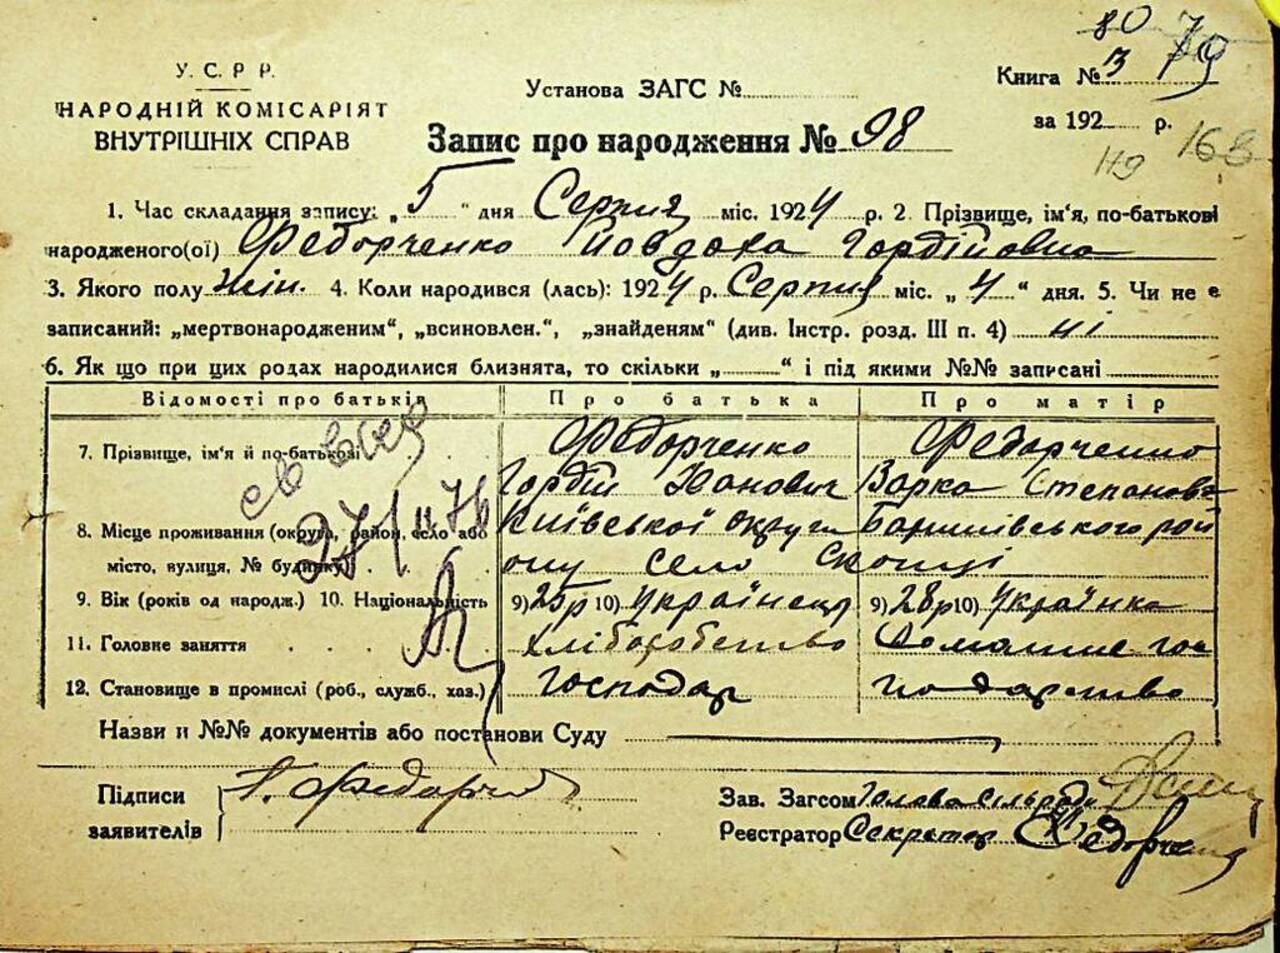 80 79
У. С. Р Р.
НАРОДНІЙ КОМІСАРІЯТ
ВНУТРІШНІХ СПРАВ
Установа ЗАГС №
Книга № 3
за 192 р.
119 168
Запис про народження № 98
1. Час складання запису: „5" дня Серпня міс. 1924 р. 2. Прізвище, ім'я, по-батькові
народженого(ої) Федорченко Йовдоха Гордійовна
3. Якого полу жін. 4. Коли народився (лась): 1924 р. Серпня міс. „4" дня. 5. Чи не є
записаний: „мертвонародженим", „всиновлен.", „знайденям" (див. Інстр. розд. III п. 4) ні
6. Як що при цих родах народилися близнята, то скільки „ " і під якими №№ записані
Відомості про батьків Про батька Про матір
7. Прізвище, ім'я й по-батькові Федорченко Федорченко
Гордій Іванович Варка Степанов
8. Місце проживання (округа, район, село або Київської округи Баришівського рай
місто, вулиця, № будинку) ону село Скопці
9. Вік (років од народж.) 10. Національність 9) 25р 10) Українець 9) 28р 10) Українка
11. Головне заняття хліборобство Домашнє гос
12. Становище в промислі (роб., служб., хаз.) господар подарство
27/II 76
Назви и №№ документів або постанови Суду
Підписи
заявителів
Зав. Загсом Голова сільради
Реєстратор Секретар Федорченко